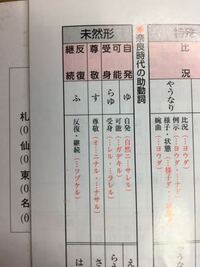 特殊
比況
やうなり
比況（…ヨウダ）
例示（…ヨウナ）
様子・状態（…様子ダ）
婉曲（…ヨウダ）
奈良時代の助動詞
未然形
自発
可能
受身
尊敬
反復
継続
ゆ
らゆ
す
ふ
自発（自然ニ…サレル）
可能（…ガデキル）
受身（…レル・…ラレル）
尊敬（オ…ニナル・…ナサル）
反復・継続（…ツヅケル）
え
らえ
さ
は
札(0
仙(0
東(0
名(0